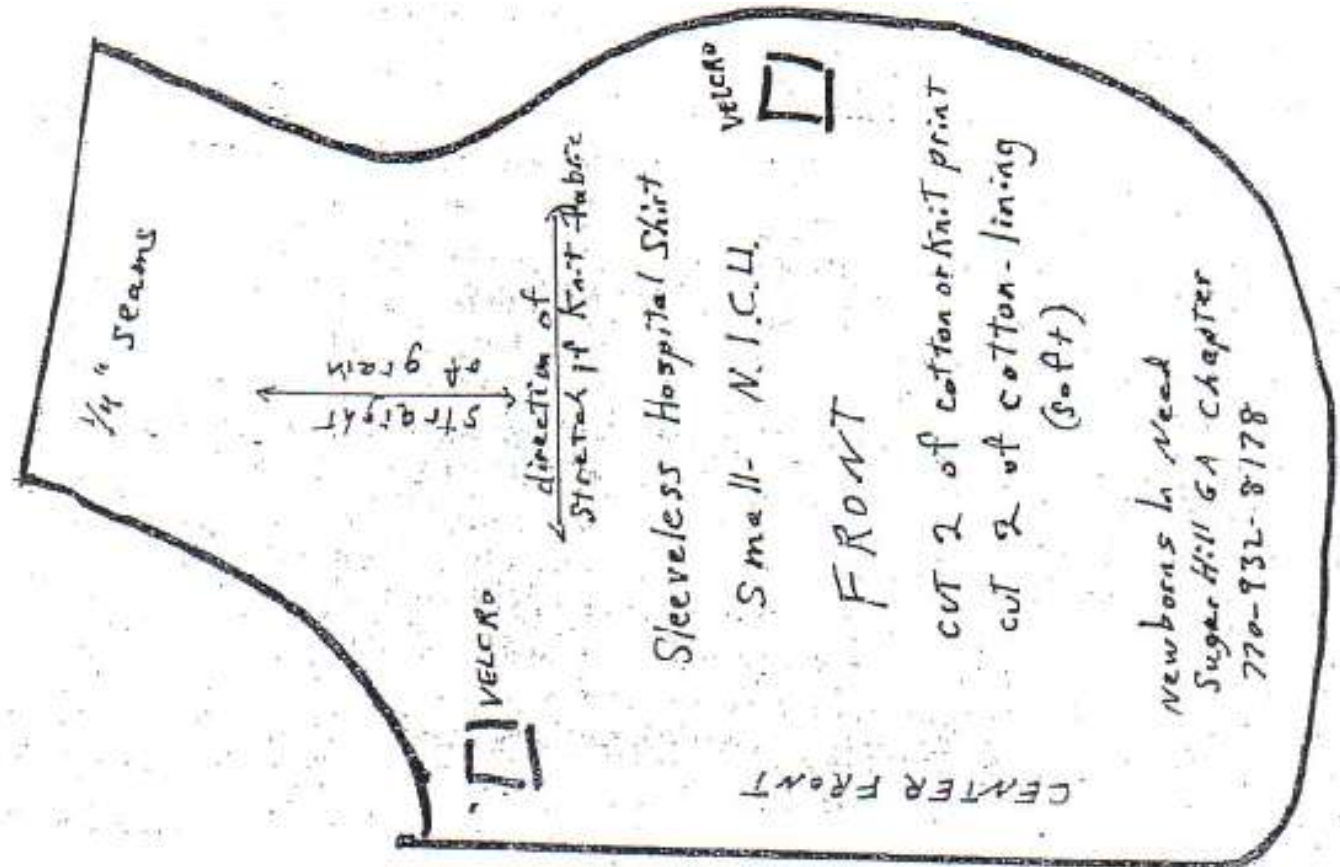 1/4" seams
straight
of grain
direction of
stretch if knit fabric
VELCRO
VELCRO
Sleeveless Hospital Shirt
Small- N.I.C.U.
FRONT
CUT 2 of cotton or knit print
CUT 2 of cotton-lining
(soft)
CENTER FRONT
Newborns In Need
Sugar Hill GA Chapter
770-932-8178